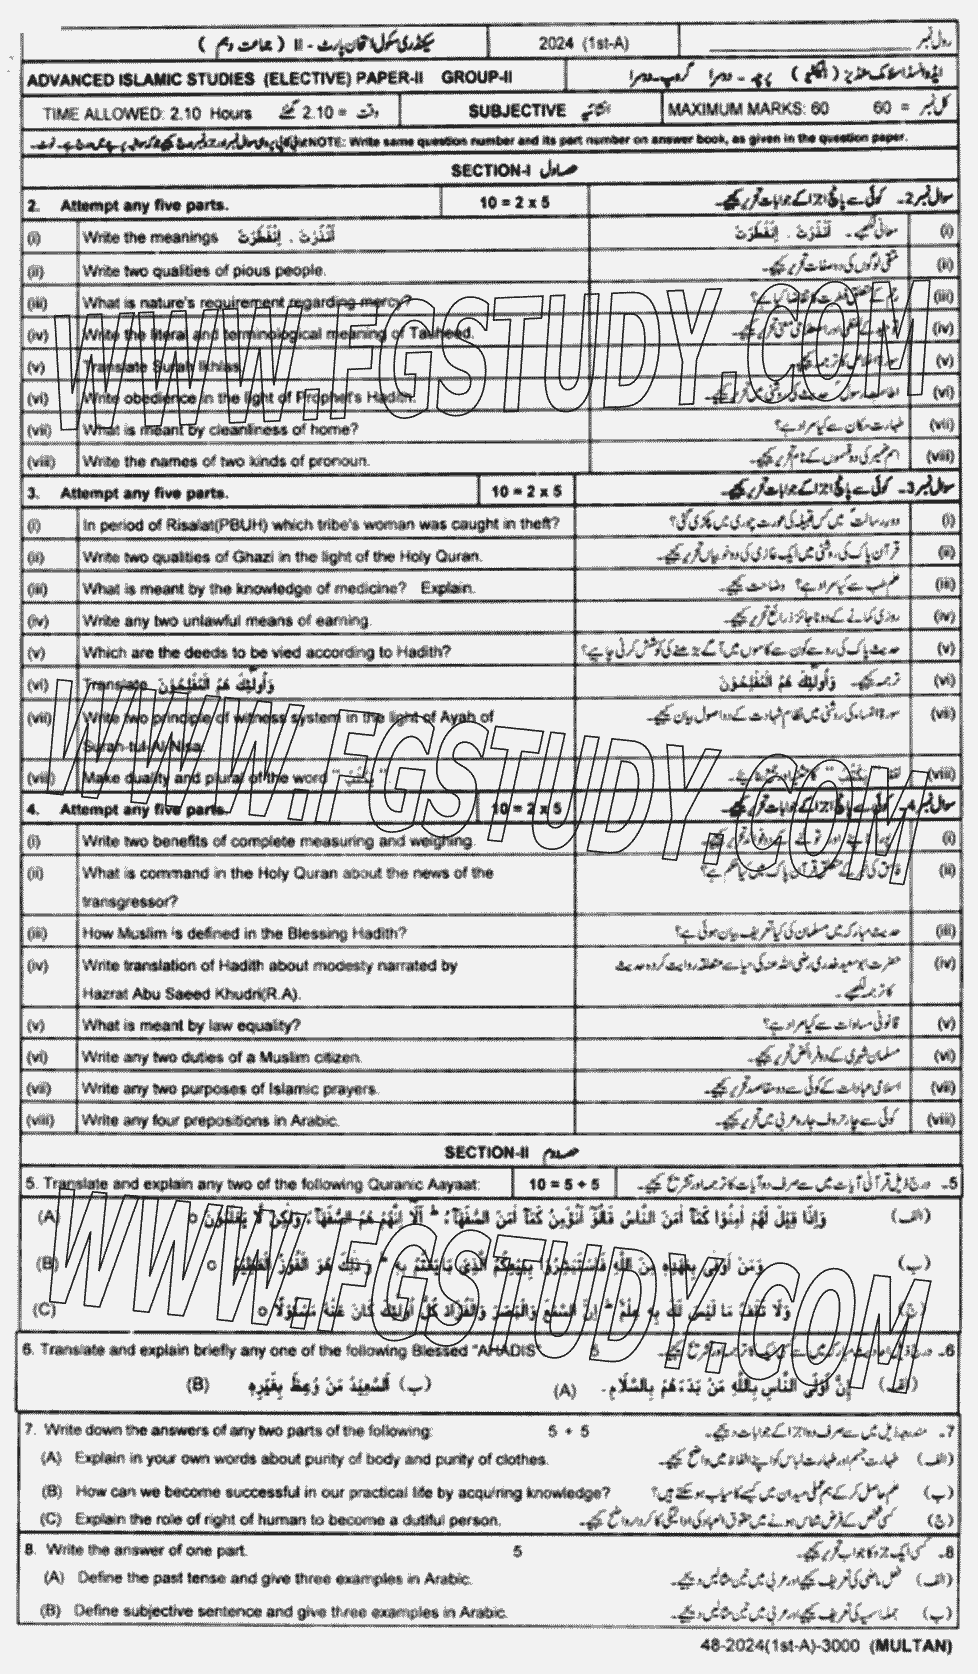 سیکنڈری سکول امتحان پارٹ - II ( جماعت دہم ) 2024 (1st-A) رول نمبر
ADVANCED ISLAMIC STUDIES (ELECTIVE) PAPER-II GROUP-II
TIME ALLOWED: 2.10 Hours وقت = 2.10 گھنٹے SUBJECTIVE انشائیہ MAXIMUM MARKS: 60 کل نمبر = 60
NOTE: Write same question number and its part number on answer book, as given in the question paper.
SECTION-I حصہ اول
2. Attempt any five parts. 10 = 2 x 5 سوال نمبر 2۔ کوئی سے پانچ اجزا کے جوابات تحریر کیجیے۔
(i) Write the meanings اَنْذَرْتَ ۔ اِنْفَطَرَتْ معانی لکھیے۔ اَنْذَرْتَ ۔ اِنْفَطَرَتْ (i)
(ii) Write two qualities of pious people. متقی لوگوں کی دو صفات تحریر کیجیے۔ (ii)
(iii) What is nature's requirement regarding mercy? (iii)
(iv) Write the literal and terminological meaning of Tauheed. (iv)
(v) Translate Surah Ikhlas. (v)
(vi) Write obedience in the light of Prophet's Hadith. (vi)
(vii) What is meant by cleanliness of home? طہارت مکان سے کیا مراد ہے؟ (vii)
(viii) Write the names of two kinds of pronoun. اسم ضمیر کی دو قسموں کے نام تحریر کیجیے۔ (viii)
3. Attempt any five parts. 10 = 2 x 5 سوال نمبر 3۔ کوئی سے پانچ اجزا کے جوابات تحریر کیجیے۔
(i) In period of Risalat(PBUH) which tribe's woman was caught in theft? دور رسالت میں کس قبیلہ کی عورت چوری میں پکڑی گئی؟ (i)
(ii) Write two qualities of Ghazi in the light of the Holy Quran. قرآن پاک کی روشنی میں ایک غازی کی دو خوبیاں تحریر کیجیے۔ (ii)
(iii) What is meant by the knowledge of medicine? Explain. علم طب سے کیا مراد ہے؟ وضاحت کیجیے۔ (iii)
(iv) Write any two unlawful means of earning. روزی کمانے کے دو ناجائز ذرائع تحریر کیجیے۔ (iv)
(v) Which are the deeds to be vied according to Hadith? حدیث پاک کی رو سے کون سے کاموں میں آگے بڑھنے کی کوشش کرنی چاہیے؟ (v)
(vi) Translate وَاُولٰٓئِكَ هُمُ الْمُفْلِحُوْنَ ترجمہ کیجیے۔ وَاُولٰٓئِكَ هُمُ الْمُفْلِحُوْنَ (vi)
(vii) Write two principle of witness system in the light of Ayah of سورۃ النساء کی روشنی میں نظام شہادت کے دو اصول بیان کیجیے۔ (vii)
Surah-tul-Al-Nisa.
(viii) Make duality and plural of the word (viii)
4. Attempt any five parts. 10 = 2 x 5 سوال نمبر 4۔ کوئی سے پانچ اجزا کے جوابات تحریر کیجیے۔
(i) Write two benefits of complete measuring and weighing. (i)
(ii) What is command in the Holy Quran about the news of the (ii)
transgressor?
(iii) How Muslim is defined in the Blessing Hadith? حدیث مبارکہ میں مسلمان کی کیا تعریف بیان ہوئی ہے؟ (iii)
(iv) Write translation of Hadith about modesty narrated by حضرت ابو سعید خدری رضی اللہ عنہ کی حیا سے متعلقہ روایت کردہ حدیث (iv)
Hazrat Abu Saeed Khudri(R.A). کا ترجمہ لکھیے۔
(v) What is meant by law equality? قانونی مساوات سے کیا مراد ہے؟ (v)
(vi) Write any two duties of a Muslim citizen. مسلمان شہری کے دو فرائض تحریر کیجیے۔ (vi)
(vii) Write any two purposes of Islamic prayers. اسلامی عبادات کے کوئی سے دو مقاصد تحریر کیجیے۔ (vii)
(viii) Write any four prepositions in Arabic. کوئی سے چار حروف جارہ عربی میں تحریر کیجیے۔ (viii)
SECTION-II حصہ دوم
5. Translate and explain any two of the following Quranic Aayaat: 10 = 5 + 5 5۔ درج ذیل قرآنی آیات میں سے صرف دو آیات کا ترجمہ اور تشریح کیجیے۔
(A) وَاِذَا قِيْلَ لَهُمْ اٰمِنُوْا كَمَآ اٰمَنَ النَّاسُ قَالُوْٓا اَنُؤْمِنُ كَمَآ اٰمَنَ السُّفَهَآءُ ؕ اَلَآ اِنَّهُمْ هُمُ السُّفَهَآءُ وَلٰكِنْ لَّا يَعْلَمُوْنَ ○ (الف)
(B) وَمَنْ اَوْفٰى بِعَهْدِهٖ مِنَ اللّٰهِ فَاسْتَبْشِرُوْا بِبَيْعِكُمُ الَّذِيْ بَايَعْتُمْ بِهٖ ؕ وَذٰلِكَ هُوَ الْفَوْزُ الْعَظِيْمُ ○ (ب)
(C) وَلَا تَقْفُ مَا لَيْسَ لَكَ بِهٖ عِلْمٌ ؕ اِنَّ السَّمْعَ وَالْبَصَرَ وَالْفُؤَادَ كُلُّ اُولٰٓئِكَ كَانَ عَنْهُ مَسْئُوْلًا ○ (ج)
6. Translate and explain briefly any one of the following Blessed "AHADIS" 5
(B) اَلسَّعِيْدُ مَنْ وُعِظَ بِغَيْرِهٖ (ب) (A) اِنَّ اَوْلَى النَّاسِ بِاللّٰهِ مَنْ بَدَءَهُمْ بِالسَّلَامِ۔ (الف)
7. Write down the answers of any two parts of the following: 5 + 5 7۔ مندرجہ ذیل میں سے صرف دو اجزا کے جوابات دیجیے۔
(A) Explain in your own words about purity of body and purity of clothes. طہارت جسم اور طہارت لباس کو اپنے الفاظ میں واضح کیجیے۔ (الف)
(B) How can we become successful in our practical life by acquiring knowledge? علم حاصل کر کے ہم عملی میدان میں کیسے کامیاب ہو سکتے ہیں؟ (ب)
(C) Explain the role of right of human to become a dutiful person. کسی شخص کے فرض شناس ہونے میں حقوق العباد کی ادائیگی کا کردار واضح کیجیے۔ (ج)
8. Write the answer of one part. 5 8۔ کسی ایک جزو کا جواب تحریر کیجیے۔
(A) Define the past tense and give three examples in Arabic. فعل ماضی کی تعریف کیجیے اور عربی میں تین مثالیں دیجیے۔ (الف)
(B) Define subjective sentence and give three examples in Arabic. جملہ اسمیہ کی تعریف کیجیے اور عربی میں تین مثالیں دیجیے۔ (ب)
48-2024(1st-A)-3000 (MULTAN)
WWW.FGSTUDY.COM
WWW.FGSTUDY.COM
WWW.FGSTUDY.COM